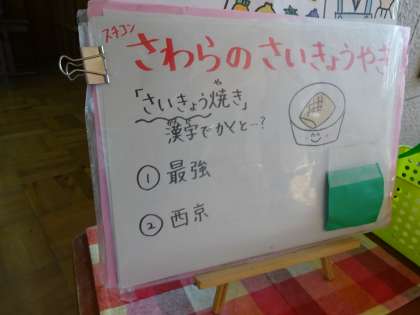 スチコン
さわらのさいきょうやき
や
「さいきょう焼き」
漢字でかくと…?
① 最強
② 西京